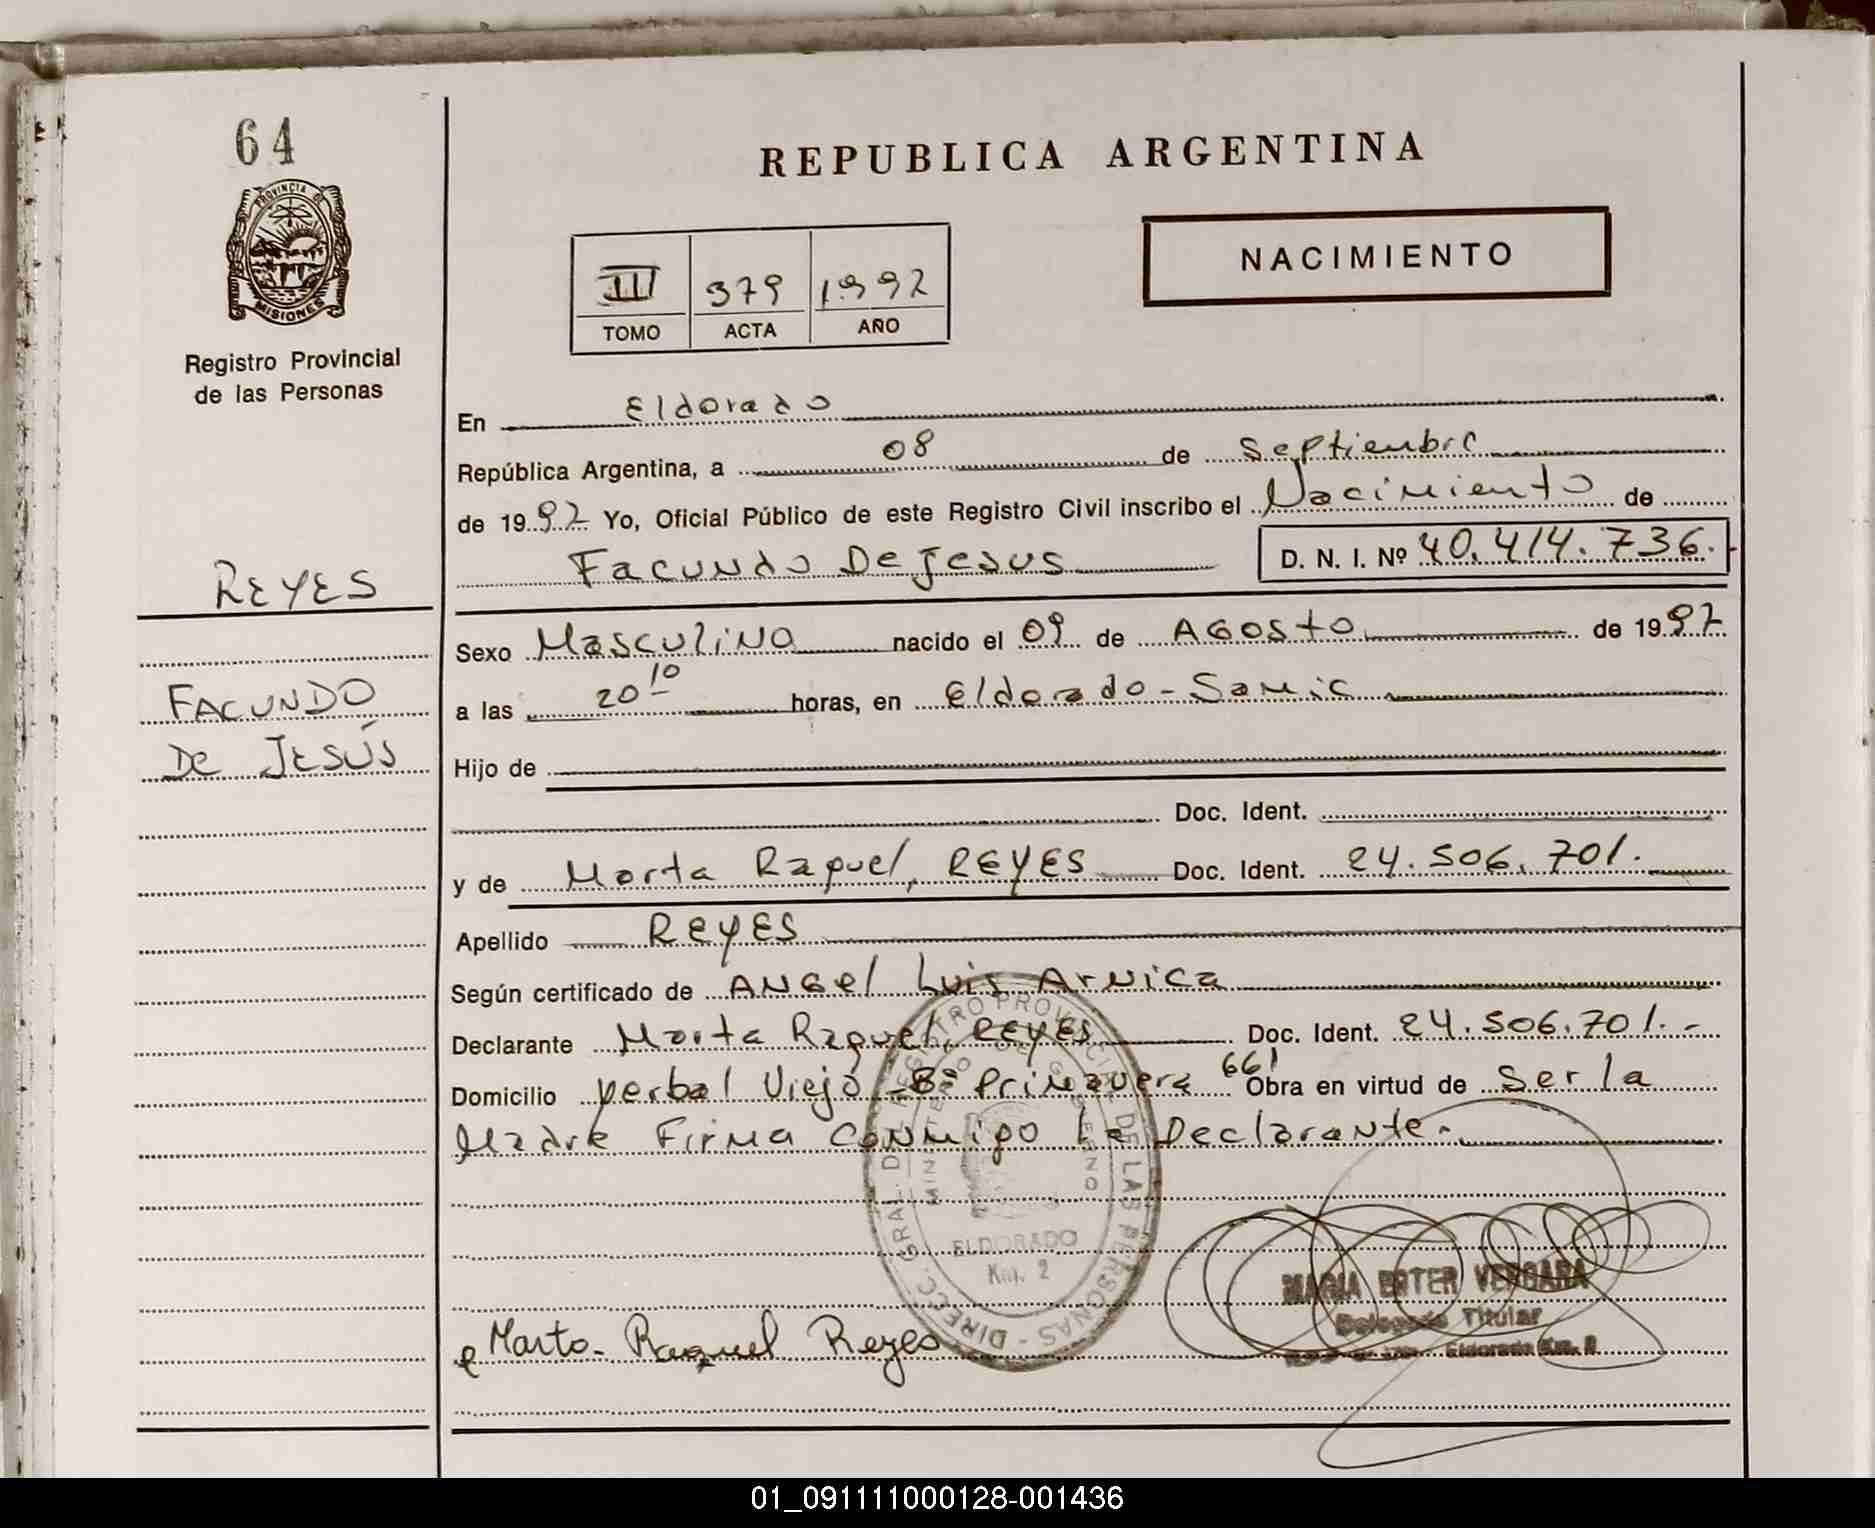 64
PROVINCIA DE
MISIONES
Registro Provincial
de las Personas
REPUBLICA ARGENTINA
NACIMIENTO
III 379 1992
TOMO ACTA AÑO
En Eldorado
República Argentina, a 08 de Septiembre
de 1992 Yo, Oficial Público de este Registro Civil inscribo el Nacimiento de
Facundo De Jesus D. N. I. Nº 40.414.736.
REYES
Sexo Masculino nacido el 09 de AGosto de 1992
FACUNDO
DE JESÚS
a las 20 10 horas, en Eldorado - Samic
Hijo de
Doc. Ident.
y de Marta Raquel, REYES Doc. Ident. 24.506.701.
Apellido REYES
Según certificado de ANGel Luis Arnica
Declarante Marta Raquel, REYES Doc. Ident. 24.506.701.-
Domicilio yerbal Viejo - Bº Primavera 661 Obra en virtud de Ser la
Madre Firma Conmigo La Declarante.-
DIRECC. GRAL. DEL REGISTRO PROVINCIAL DE LAS PERSONAS -
MINISTERIO DE GOBIERNO
ELDORADO
Km. 2
MARIA ESTER VERGARA
Delegada Titular
Eldorado Km. 2
Marta Raquel Reyes
01_091111000128-001436